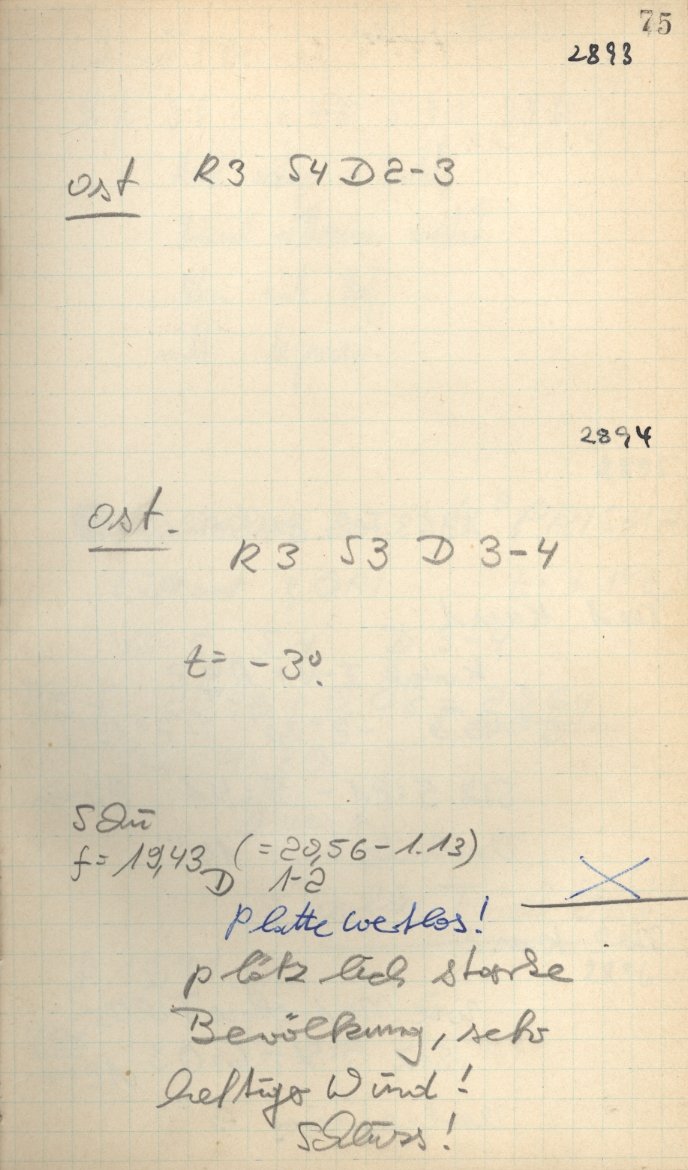 75
2893
Ost R3 S4 D2-3
2894
Ost.
R3 S3 D 3-4
t = -3°.
Schü
f = 19,43 (= 20,56 - 1.13)
D 1-2
Platte wertlos!
plötzlich starke
Bewölkung, sehr
heftiger Wind!
Schluss!